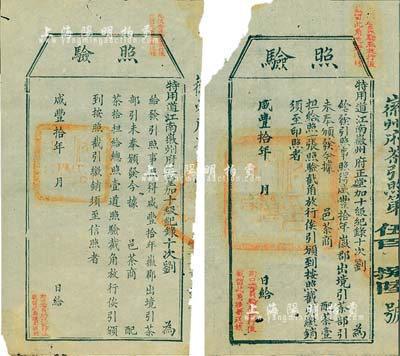 驗照
特用道江南徽州府正堂加十級紀錄十次劉 為
給發引照事照得咸豐拾年徽郡出境引茶
部引未奉頒發今據 邑茶商 配
茶拾担給總照壹道照驗截角放行俟引頒
到按照截引繳銷須至信照者
咸豐拾年 月 日給
驗照
特用道江南徽州府正堂加十級紀錄十次劉 為
給發引照事照得咸豐拾年徽郡出境引茶部引
未奉頒發今據 邑茶商 配茶壹
担給照一張照驗截角放行俟引頒到按照截引繳銷
須至印照者
咸豐拾年 月 日給
徽州府茶引照第 伍百 號
上海陽明拍賣